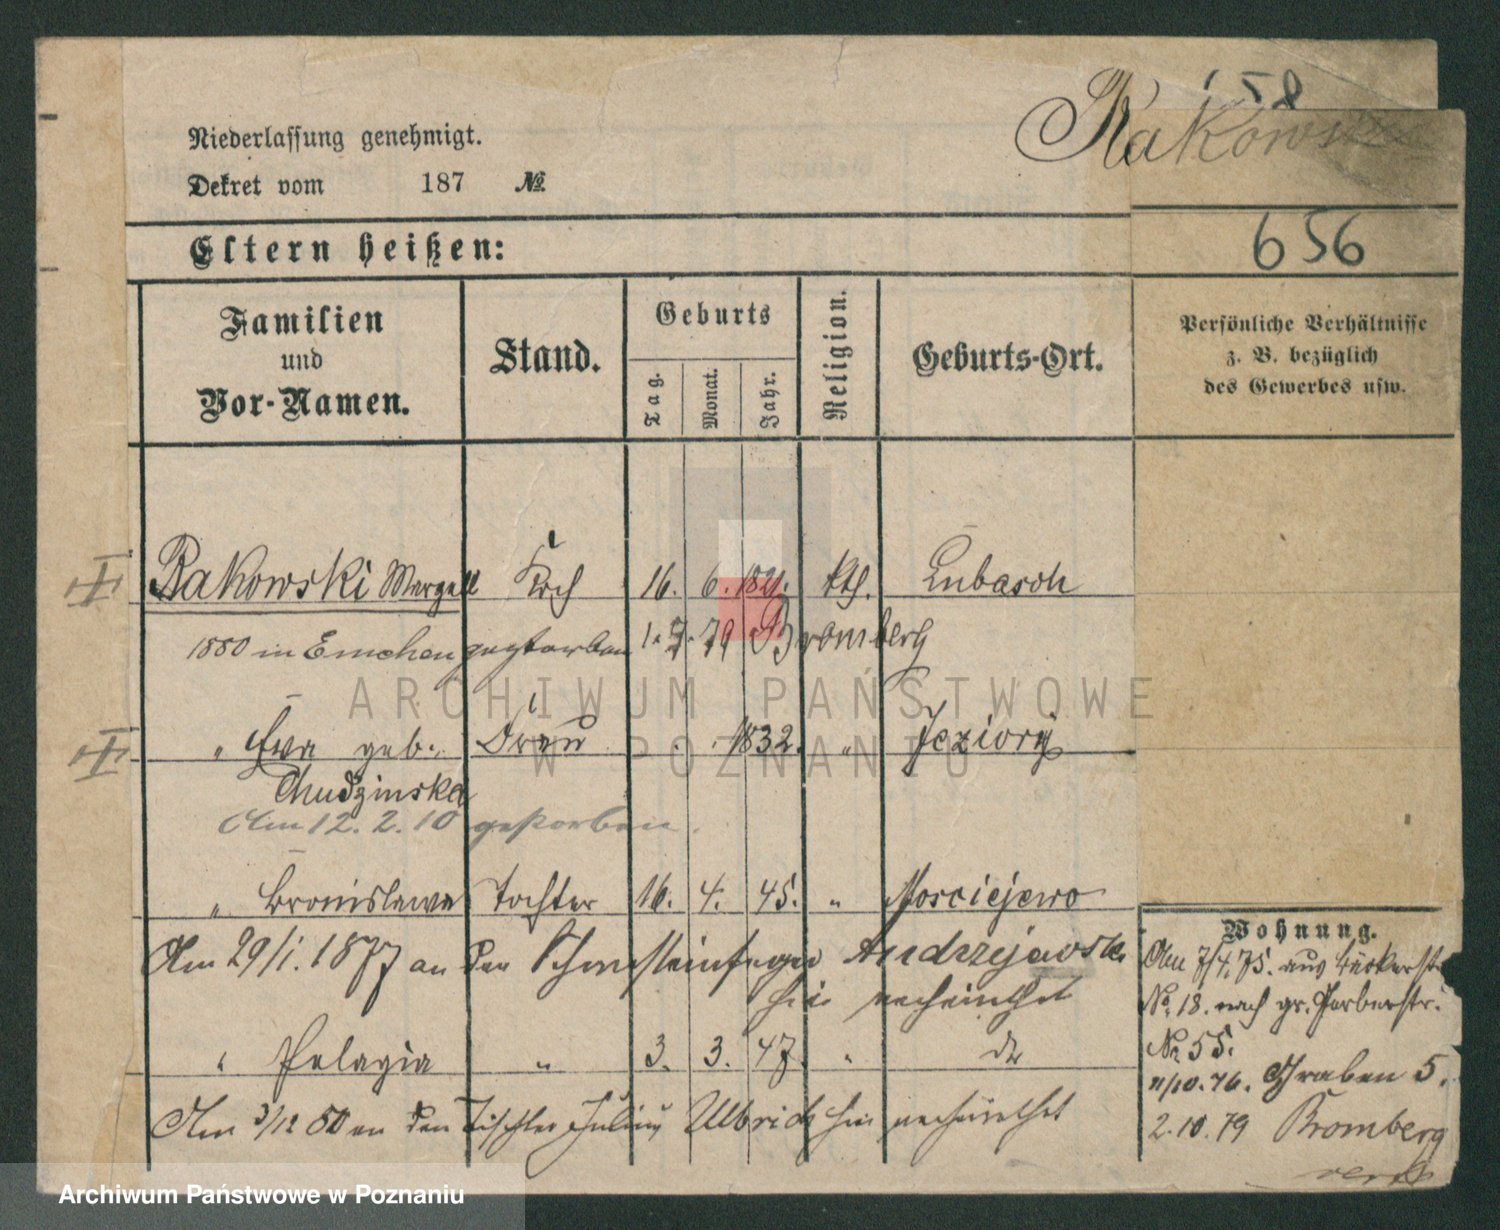 158
Rakowski
Niederlassung genehmigt.
Dekret vom 187 №
656
Eltern heißen:
Familien und Vor-Namen.
Stand.
Geburts
Tag.
Monat.
Jahr.
Religion.
Geburts-Ort.
Persönliche Verhältnisse
z. B. bezüglich
des Gewerbes usw.
Rakowski Marzell Koch 16. 6. 1821. kth. Lubasch
1880 in Emchen gestorben 1. 7. 79 Bromberg
" Ewa geb. Frau 1832. " Jeziory
Chudzinska
Am 12. 2. 10 gestorben.
" Bronislawa Tochter 16. 4. 45. " Mosciejewo
Am 29/1. 1877 an den Schornsteinfeger Andrzejewski
hier verheirathet
" Pelagia " 3. 3. 47. " do
Am 3/12 80 an den Tischler Julius Ulbrich hier verheirathet
Wohnung.
Am 7/4. 75. aus Bäckerstr.
No. 18. nach gr. Gerberstr.
No 55.
11/10. 76. Graben 5.
2. 10. 79 Bromberg
ARCHIWUM PAŃSTWOWE
W POZNANIU
Archiwum Państwowe w Poznaniu